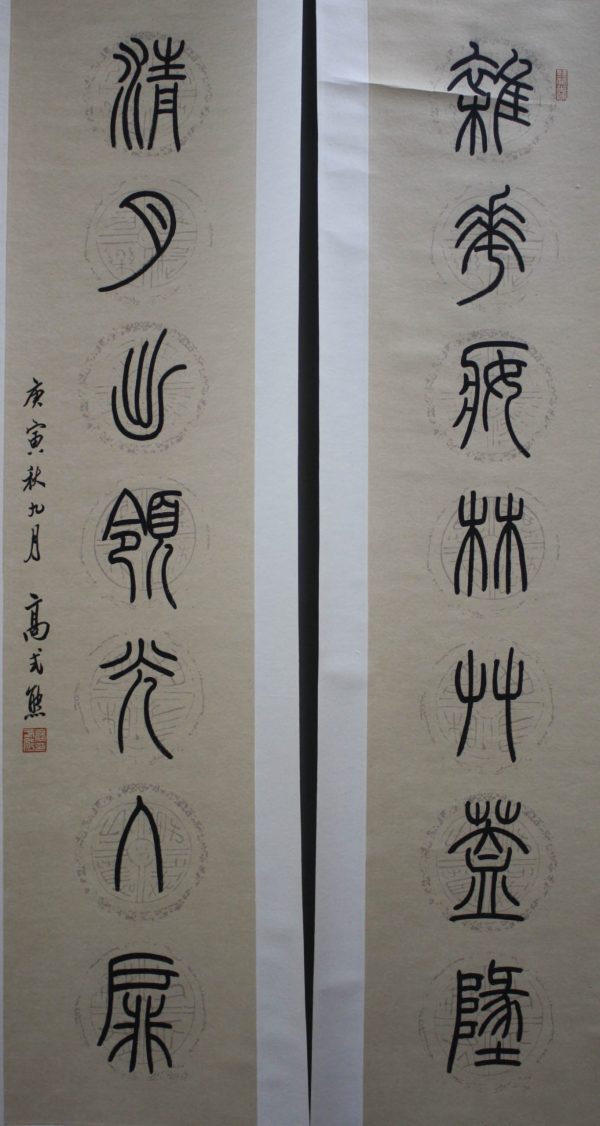 雜花妝林草蓋地
清月出領光入扉
庚寅秋九月 高式熊